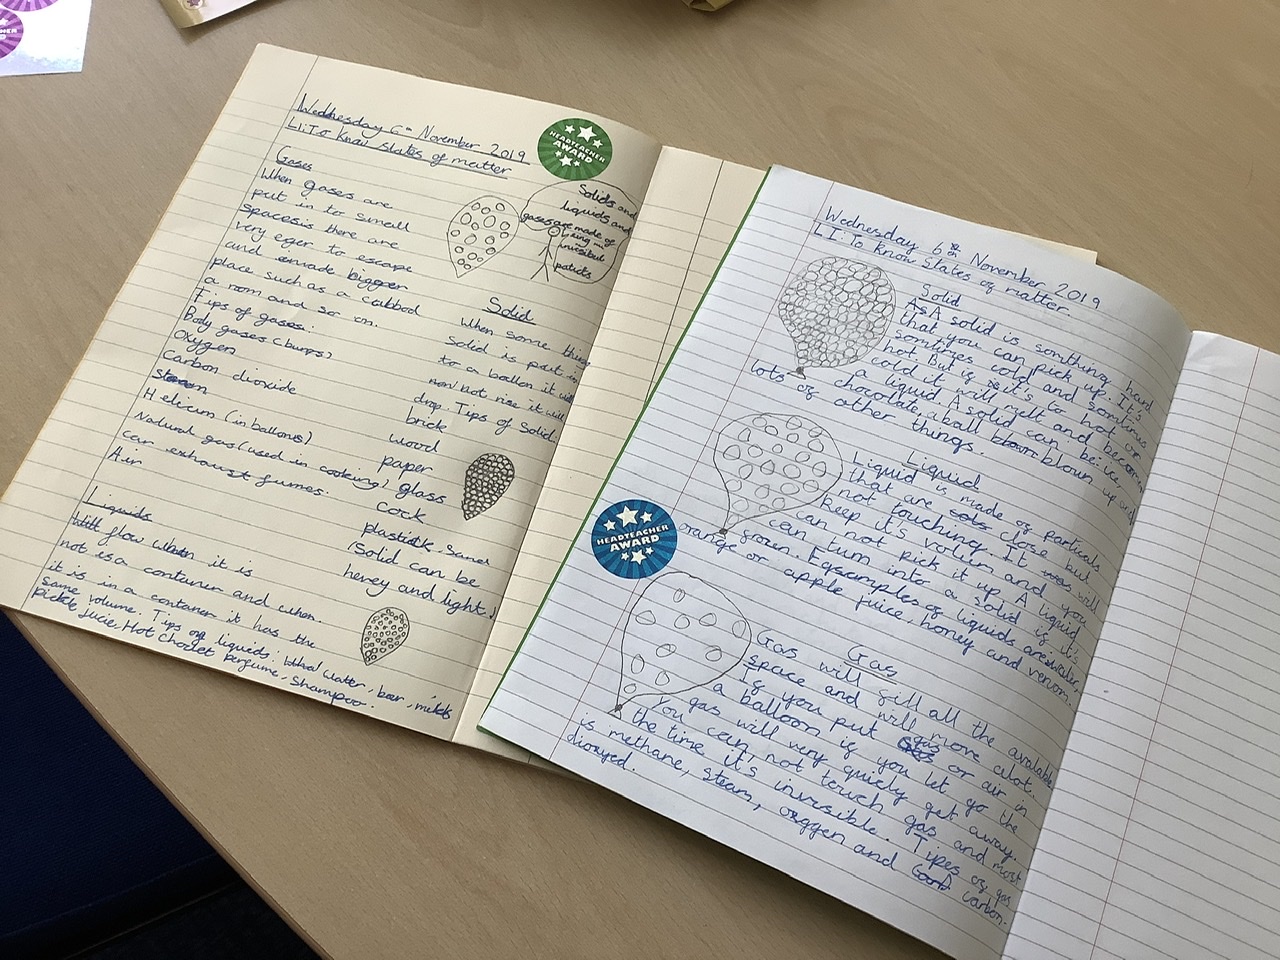 Wednesday 6th November 2019
L.I: To know states of matter
HEADTEACHER
AWARD
Gases
When gases are
put in to small
spaces there are
very eger to escape
and made bigger
place such as a cubbod
a room and so on.
Tips of gases:
Body gases (burps)
Oxygen
Carbon dioxide
Helicum (in ballons)
Natural gas (used in cooking)
car exhaust fumes.
Air
Liquids
Will flow when it is
not is a container and when
it is in a contaner it has the
same volume. Tips of liquids: Watter, beer, milk
Jucie, Hot choclet Perfume, Shampoo.
Solids and
liquids and
gases are made of
invisibul
paticls
Solid
When some thing
solid is put in
to a ballon it will
not rise it will
drop. Tips of Solid:
brick
wood
paper
glass
cock
plastick, Sand
(Solid can be
hevey and light.)
Wednesday 6th November 2019
L.I: To know States of matter
Solid
A solid is somthing hard
that you can pick up. It's
somtimes cold and somtimes
hot. But is it's to hot or
cold it will melt and become
a liquid. A solid can be: ice,
chocolate, a ball blown up and
lots of other things.
Liquid
Liquid is made of particals
that are close but
not touching. It will
keep it's volum and you
can not pick it up. A liquid
can turn into a solid if it's
frozen. Egsamples of liquids are: water,
orange or apple juice, honey and venom.
Gas
Gas will fill all the available
space and will move alot.
If you put gas or air in
a balloon if you let go the
gas will very quiely get away.
You can not touch gas and most
the time it's invisible. Tipes of gas
is methane, steam, oxggen and carbon-
dioxyed.
HEADTEACHER
AWARD